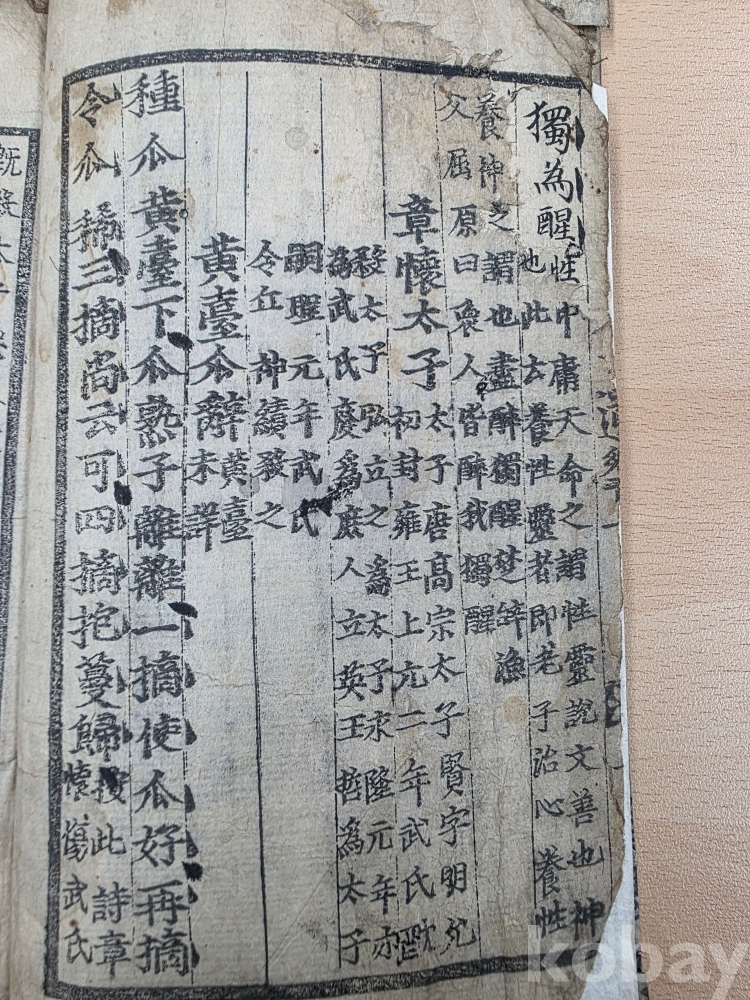 獨為醒性中庸天命之謂性靈說文善也神
也此云養性靈者即老子治心養性
養神之謂也盡醉獨醒楚辞漁
父屈原曰衆人皆醉我獨醒
章懷太子太子唐高宗太子賢字明允
初封雍王上元二年武氏酖
殺太子弘立之為太子永隆元年亦
為武氏廢爲庶人立英王哲為太子
嗣聖元年武氏
令丘神績發之
黄臺瓜辭黄臺
未詳
種瓜黄臺下瓜熟子離離一摘使瓜好再摘
令瓜稀三摘尚云可四摘抱蔓歸按此詩章
懷傷武氏
kobay